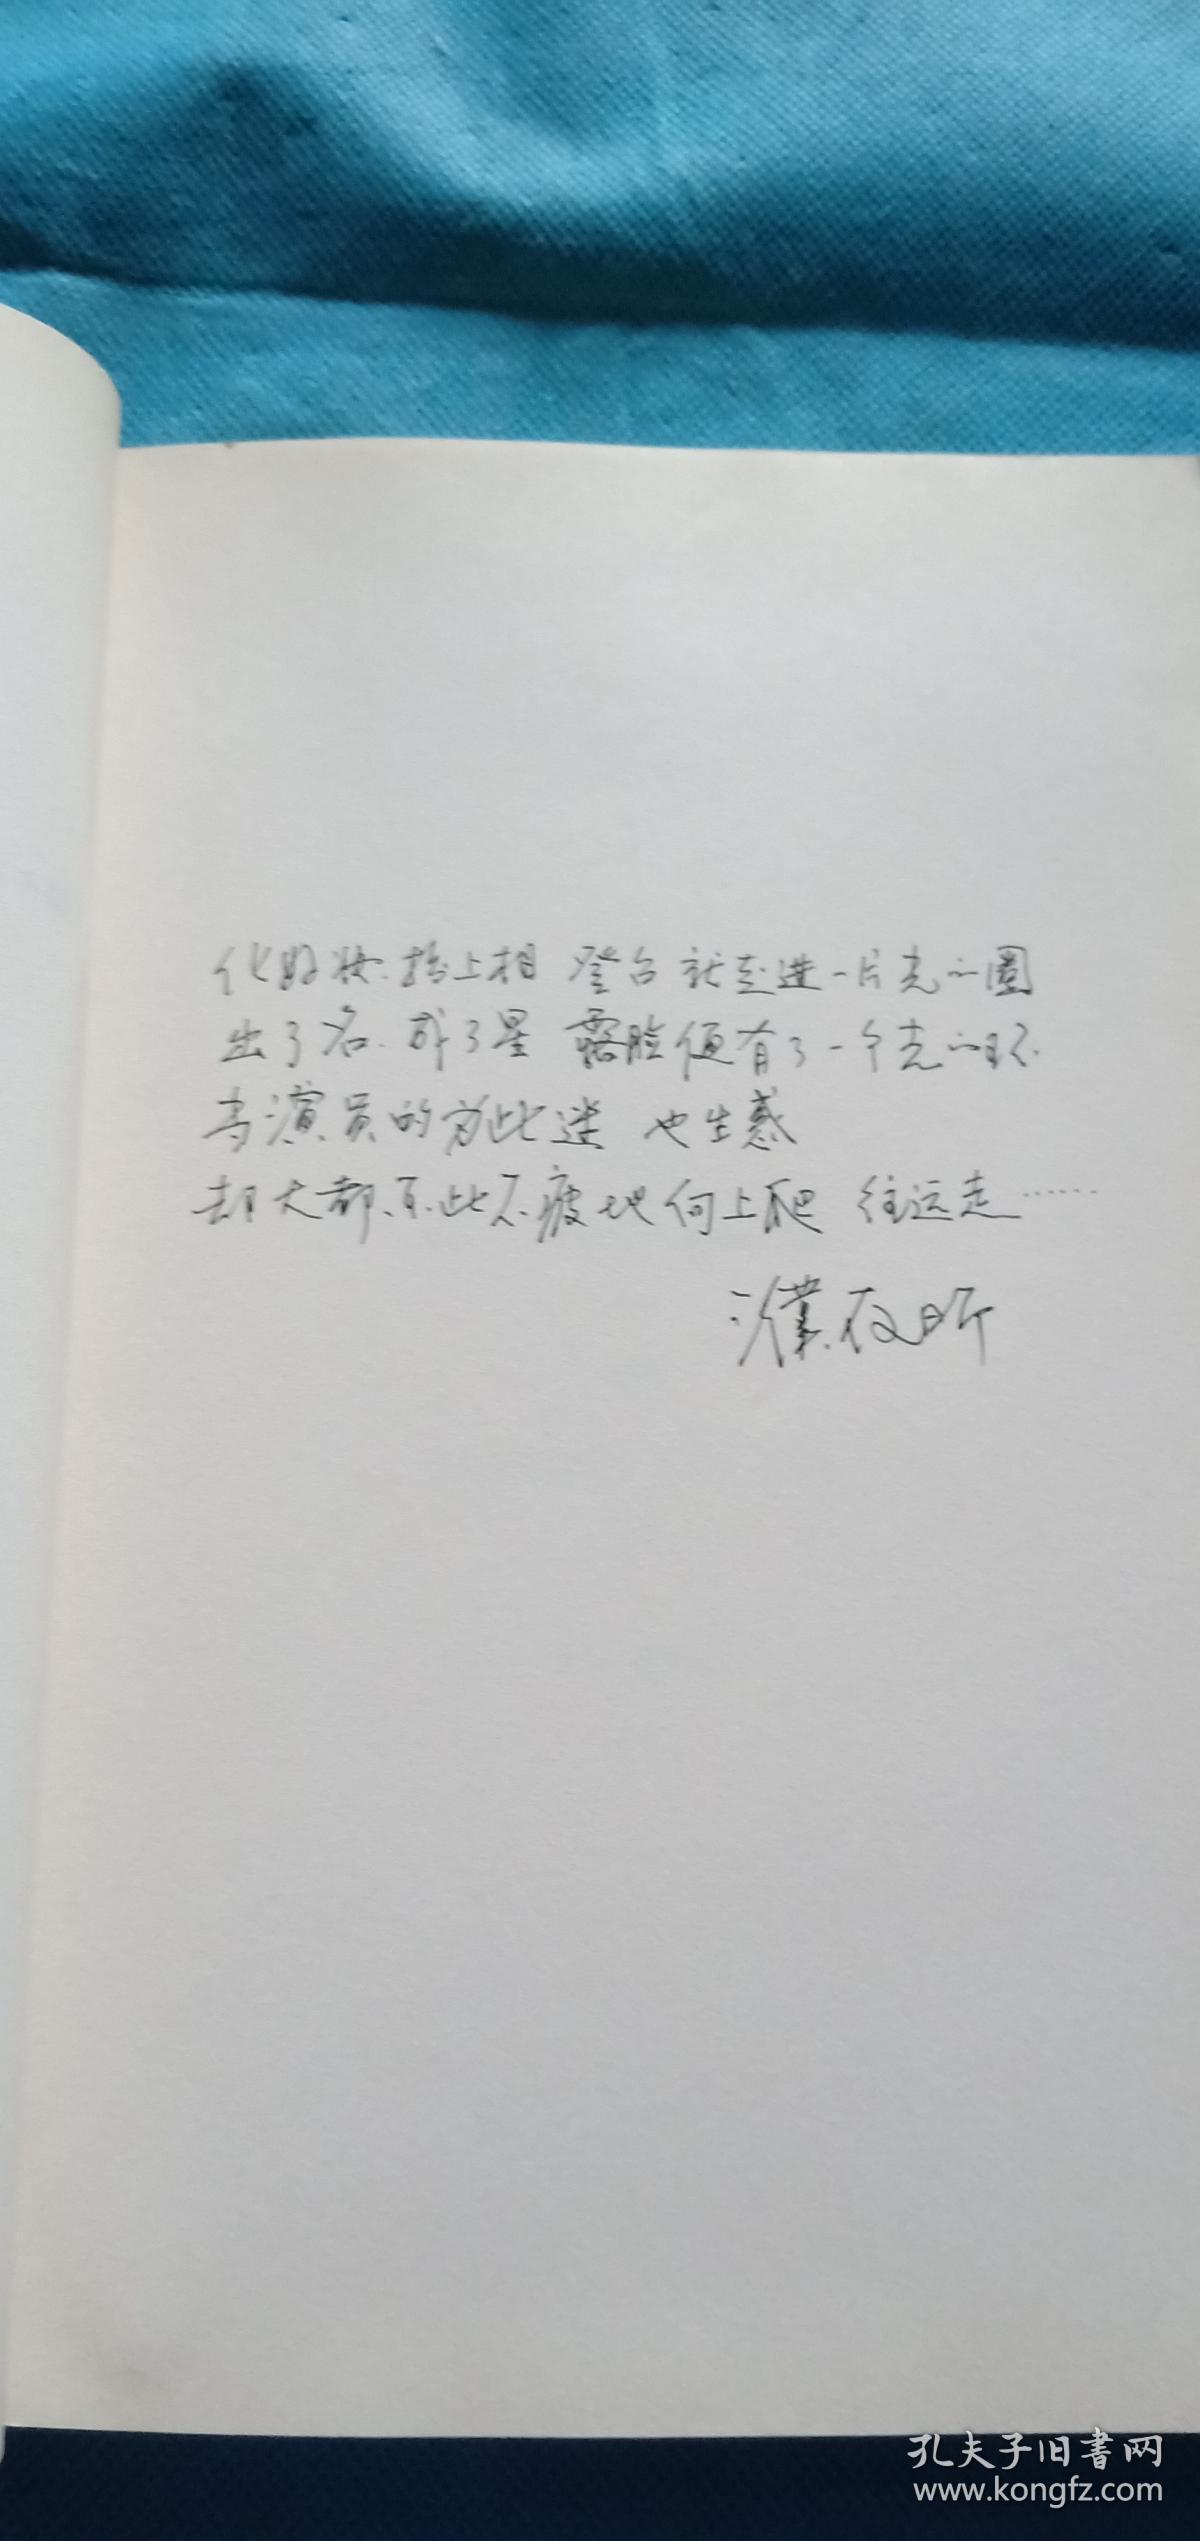 化好妆、扮上相 登台就走进一片光的圈
出了名、成了星 露脸便有了一个光的环
当演员的为此迷 也生惑
却大都、不、此不疲地向上爬 往远走……
濮存昕
孔夫子旧书网
www.kongfz.com